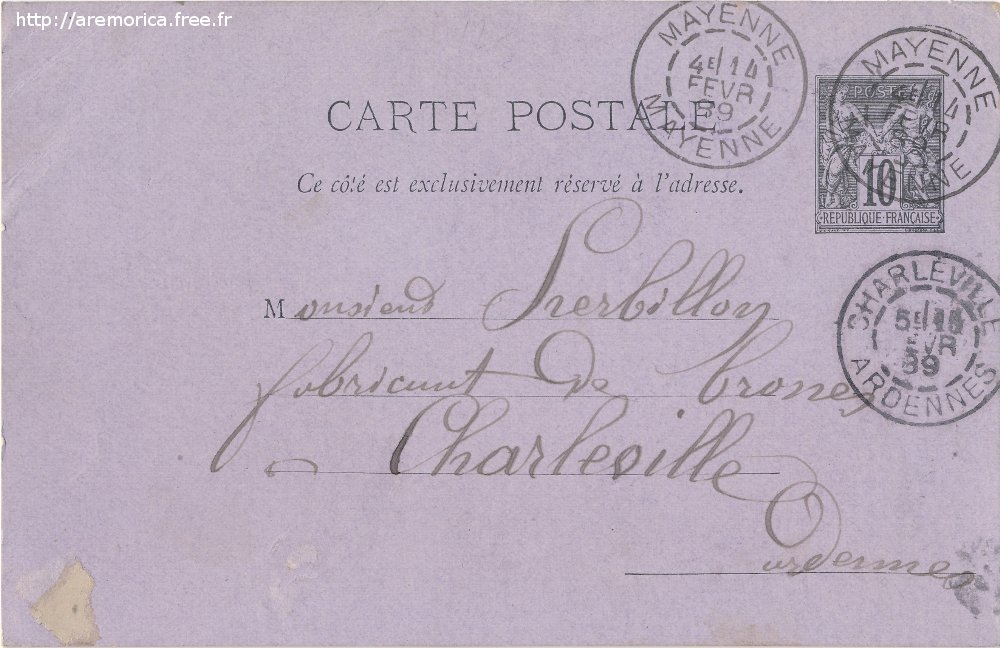 http://aremorica.free.fr
MAYENNE
4E/14
FEVR
89
MAYENNE
MAYENNE
POSTES
10
REPUBLIQUE FRANÇAISE
CARTE POSTALE
Ce côté est exclusivement réservé à l'adresse.
CHARLEVILLE
5E/15
FEVR
89
ARDENNES
Monsieur Herbillon
fabricant de
Charleville
Ardennes